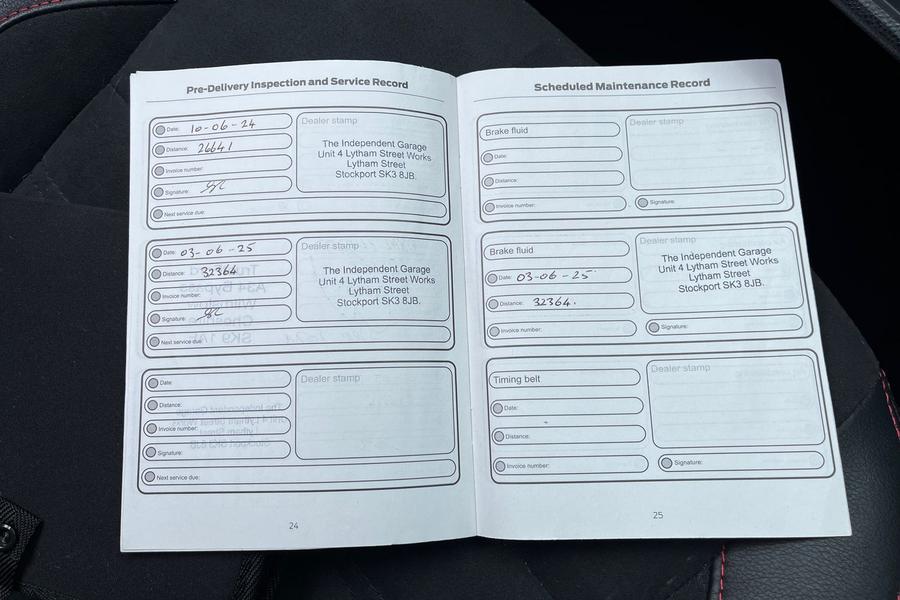 Pre-Delivery Inspection and Service Record
Date: 10-06-24
Distance: 26641
Invoice number:
Signature:
Next service due:
Dealer stamp
The Independent Garage
Unit 4 Lytham Street Works
Lytham Street
Stockport SK3 8JB.
Date: 03-06-25
Distance: 32364
Invoice number:
Signature:
Next service due:
Dealer stamp
The Independent Garage
Unit 4 Lytham Street Works
Lytham Street
Stockport SK3 8JB.
Date:
Distance:
Invoice number:
Signature:
Next service due:
Dealer stamp
24
Scheduled Maintenance Record
Brake fluid
Date:
Distance:
Invoice number:
Dealer stamp
Signature:
Brake fluid
Date: 03-06-25
Distance: 32364.
Invoice number:
Dealer stamp
The Independent Garage
Unit 4 Lytham Street Works
Lytham Street
Stockport SK3 8JB.
Signature:
Timing belt
Date:
Distance:
Invoice number:
Dealer stamp
Signature:
25